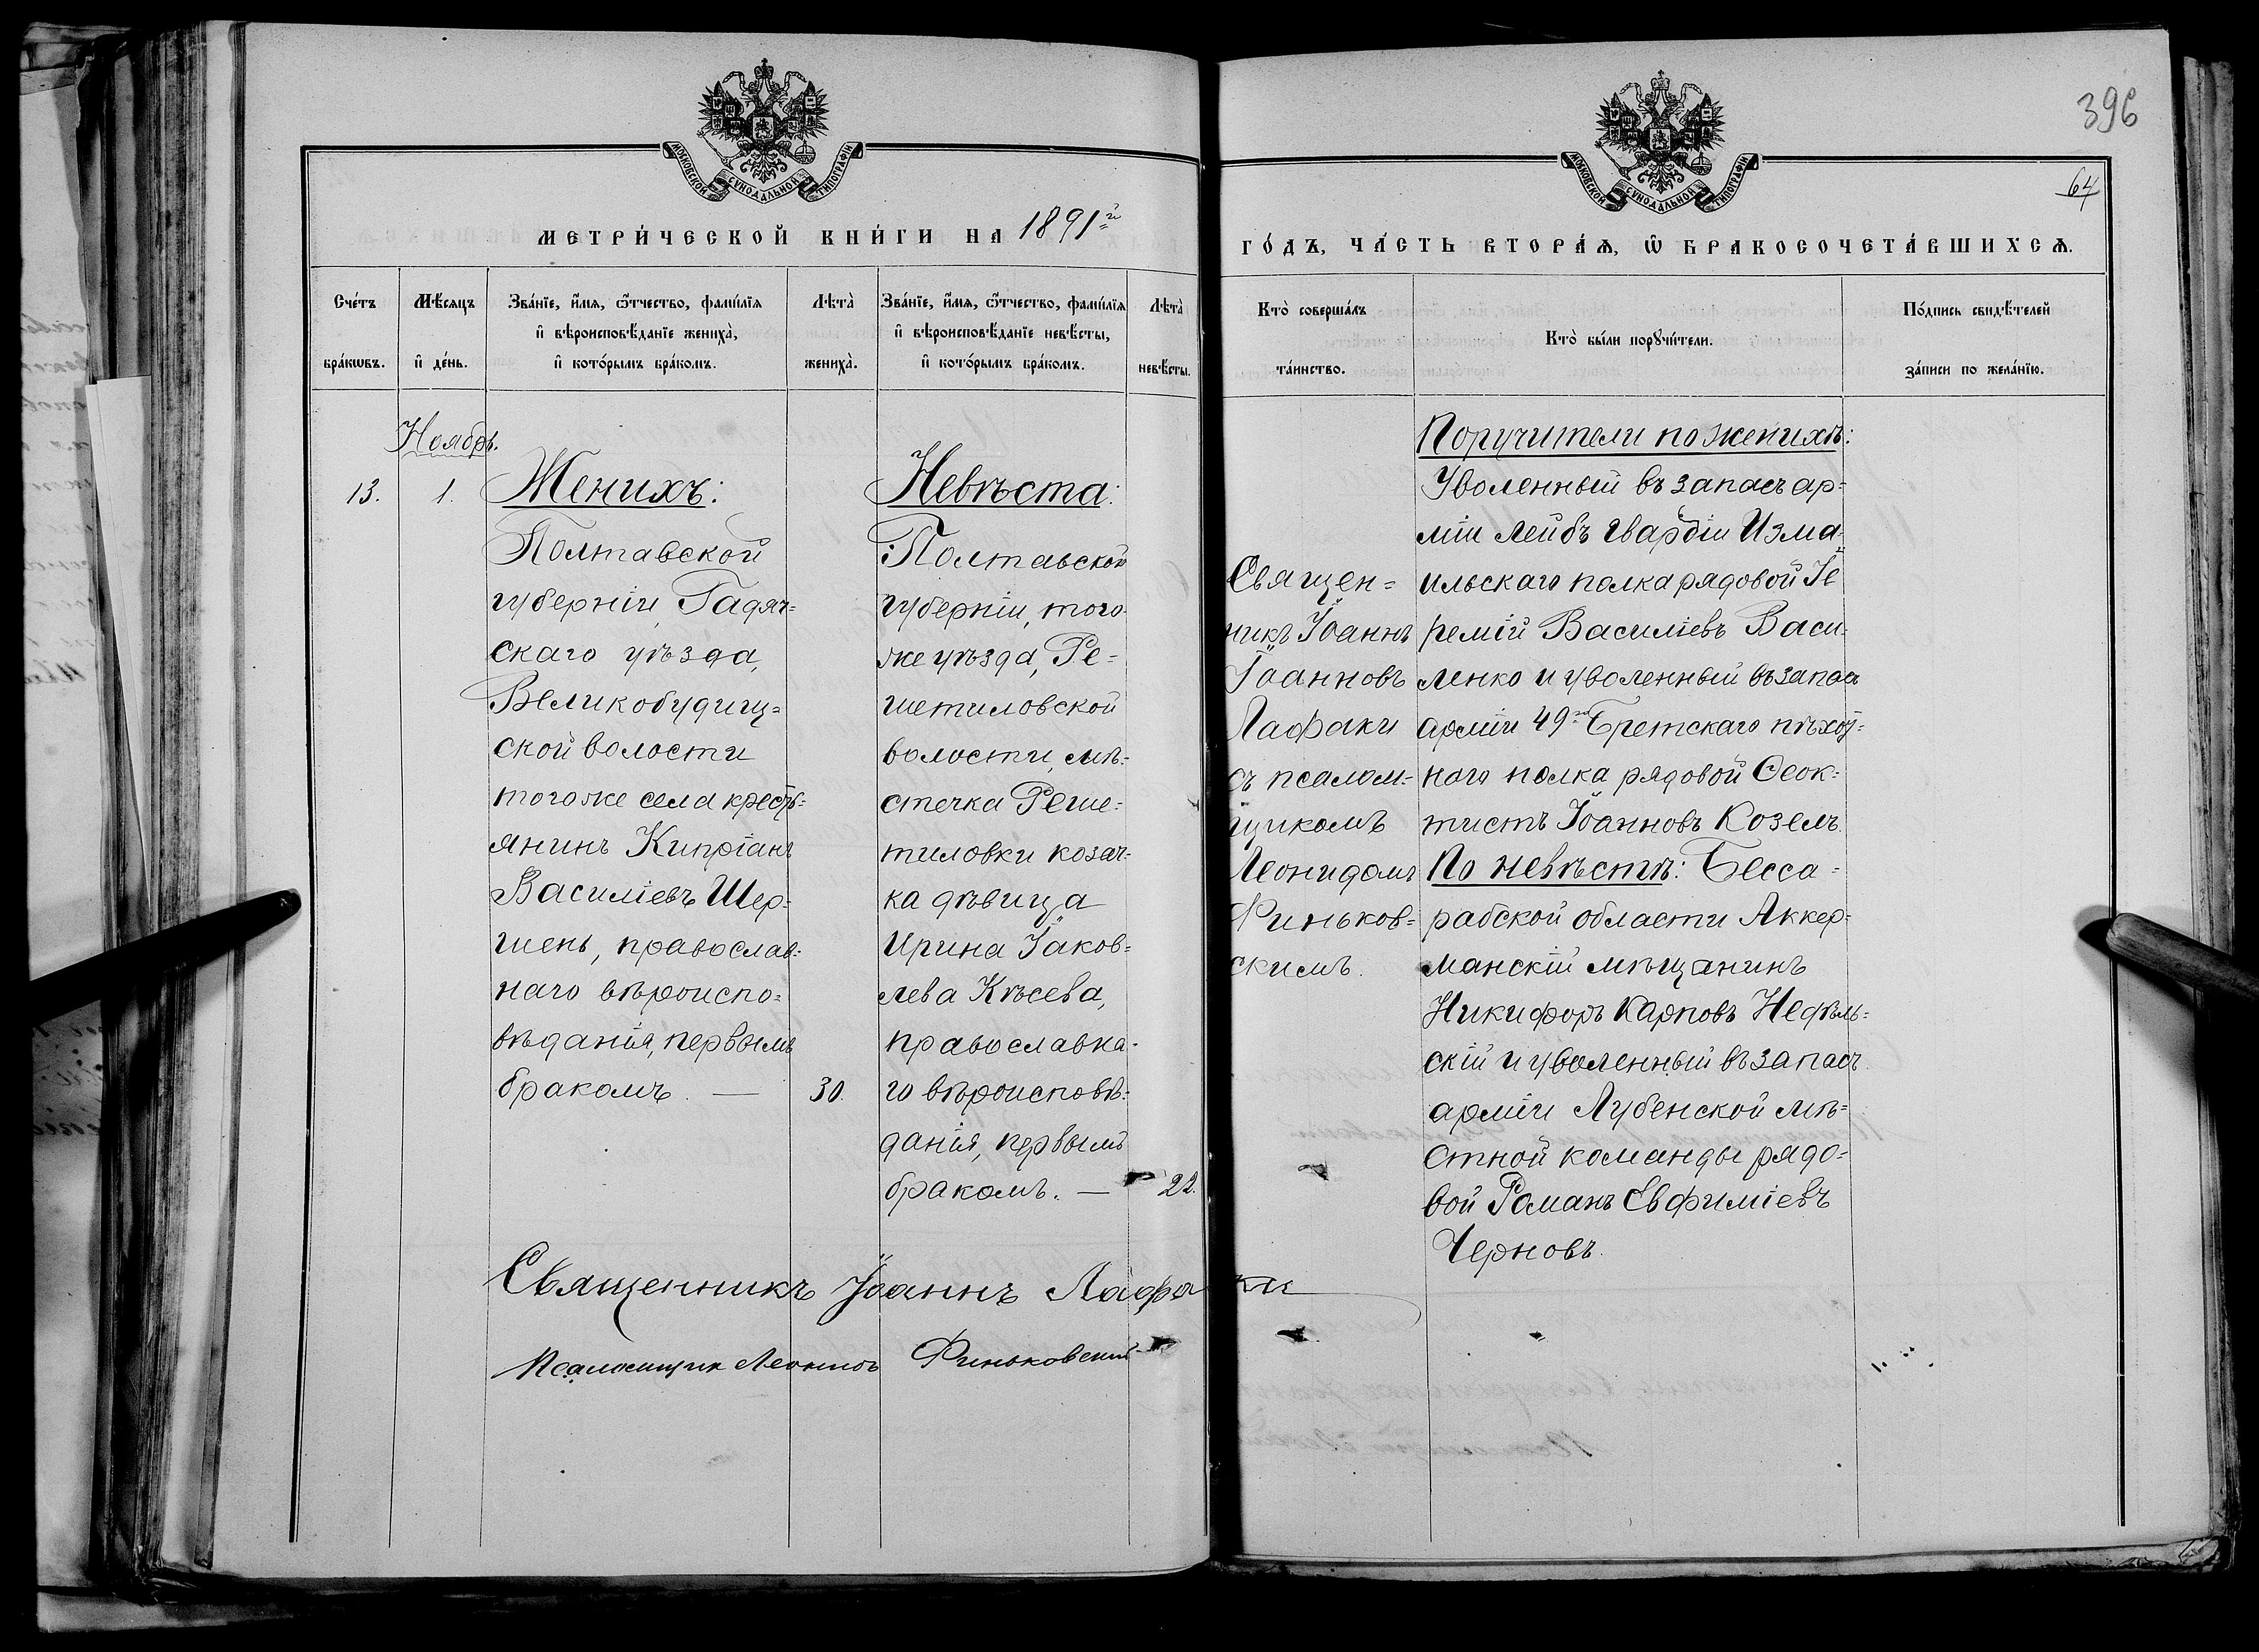 396
64
МОСКОВСКОЙ СѴНОДАЛЬНОЙ ТИПОГРАФІИ
МОСКОВСКОЙ СѴНОДАЛЬНОЙ ТИПОГРАФІИ
МЕТРИ́ЧЕСКОЙ КНИ́ГИ НА 1891й
ГО́ДЪ, ЧА́СТЬ ВТОРА́Ѧ, Ѡ҆ БРАКОСОЧЕТА́ВШИХСѦ.
Сче́тъ
бра́кѡвъ.
Мѣ́сяцъ
и҆ де́нь.
Зва́нїе, и҆́мѧ, ѻ҆́тчество, фами́лїѧ
и҆ вѣроисповѣ́данїе жениха̀,
и҆ кото́рымъ бра́комъ.
Лѣ́та̀
жениха̀.
Зва́нїе, и҆́мѧ, ѻ҆́тчество, фами́лїѧ
и҆ вѣроисповѣ́данїе невѣ́сты,
и҆ кото́рымъ бра́комъ.
Лѣ́та̀
невѣ́сты.
Кто̀ соверша́лъ
та́инство.
Кто̀ бы́ли порꙋчи́тели.
По́дпись свидѣ́телей
за́писи по жела́нїю.
Ноябрь.
13.
1.
Женихъ:
Полтавской
губерніи, Гадяч=
скаго уѣзда,
Великобудищ=
ской волости
того же села кресть=
янинъ Кипріанъ
Василіевъ Шер=
шень, православ=
наго вѣроиспо=
вѣданія, первымъ
бракомъ. —
30.
Невѣста:
Полтавской
губерніи, того
же уѣзда, Ре=
шетиловской
волости, мѣ=
стечка Реше=
тиловки козач=
ка дѣвица
Ирина Іаков=
лева Кѣсева,
православна=
го вѣроисповѣ=
данія, первымъ
бракомъ. —
22.
Священ=
никъ Іоаннъ
Іоанновъ
Лафаки
съ псалом=
щикомъ
Леонидомъ
Финьков=
скимъ.
Поручители по женихѣ:
Уволенный въ запасъ ар=
міи Лейбъ Гвардіи Изма=
ильскаго полка рядовой Іе
ремій Василіевъ Васи=
ленко и уволенный въ запасъ
арміи 49го Бретскаго пѣхот=
наго полка рядовой Ѳеок=
тистъ Іоанновъ Козелъ.
По невѣстѣ: Бесса=
рабской области Аккер=
манскій мѣщанинъ
Никифоръ Карповъ Недѣль=
скій и уволенный въ запасъ
арміи Лубенской мѣ=
стной команды рядо=
вой Романъ Евфиміевъ
Черновъ.
Священникъ Іоаннъ Лафаки
Псаломщик Леонидъ Финьковскій